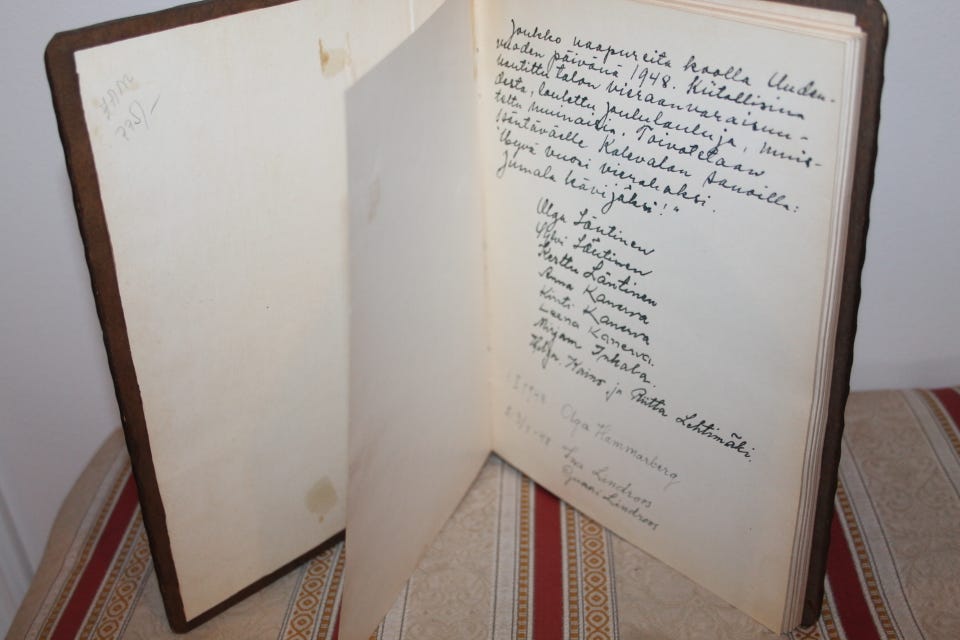 775/-
Joukko naapureita koolla Uuden-
vuoden päivänä 1948. Kiitollisina
nautittu talon vieraanvaraisuu-
desta, laulettu joululauluja, muis-
teltu muinaisia. Toivotelaan
isäntäväelle Kalevalan sanoilla:
"Hyvä vuosi vierahaksi.
Jumala kävijäksi!"
Olga Läntinen
Sylvi Läntinen
Kerttu Läntinen
Anna Kanerva
Kirsti Kanerva
Leena Kanerva.
Mirjam Inkala.
Helga, Kaino ja Riitta Lehtimäki.
Olga Hammarberg
Ina Lindroos
Gunni Lindroos